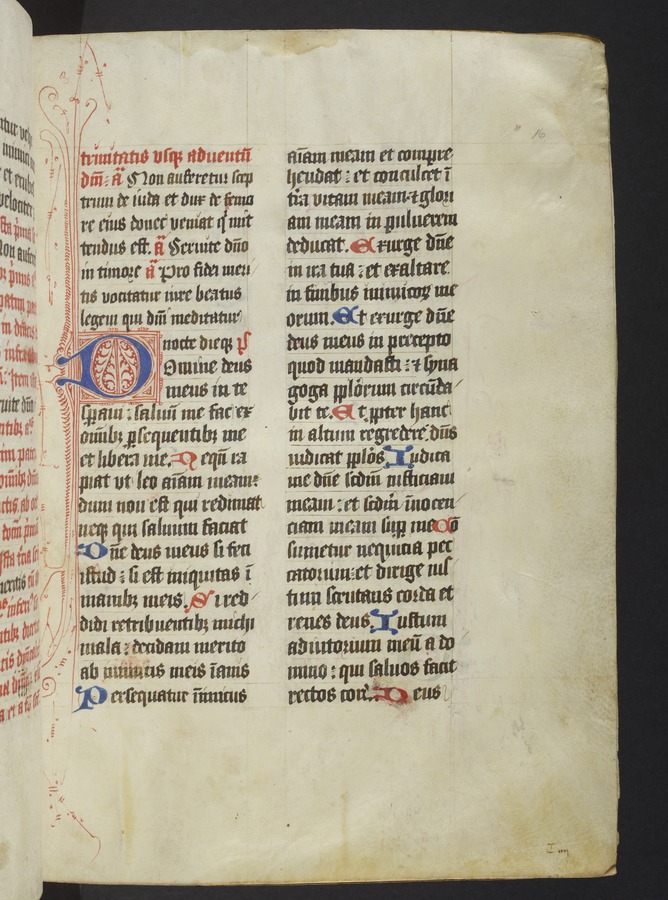 16
trinitatis usqꝫ aduentū
dm̄: a᷈ Non auferetur scep
trum de iuda et dux de femo
re eius donec veniat q̇ mit
tendus est. a᷈ Seruite dn̄o
in timore a᷈ Pro fidei meri
tis vocitatur iure beatus
legem qui dm̄ meditatur
nocte dieqꝫ ps
Domine deus
meus in te
sꝑaui : saluū me fac ex
om̄ibꝫ ꝑsequentibꝫ me
et libera me. Neqn̄ ra
piat ut leo aīam meam:
dum non est qui redimat
neqꝫ qui saluum faciat
Dn̄e deus meus si feci
istud : si est iniquitas ī
manibꝫ meis. Si red
didi retribuentibꝫ michi
mala : decidam merito
ab inimicis meis īanis
Persequatur īimicus
aīam meam et compre
hendat : et conculcet ī
t̄ra vitam meam ⁊ glori
am meam in puluerem
deducat. Exurge dn̄e
in ira tua : et exaltare
in finibus inimicoꝝ me
orum. Et exurge dn̄e
deus meus in precepto
quod mandasti : ⁊ syna
goga pp̄lorum circūda
bit te. Et ꝓpter hanc
in altum regredere : dn̄s
iudicat pp̄los. Iudica
me dn̄e scd̄m iusticiam
meam : et scd̄m īnocen
ciam meam suꝑ me Cō
sumetur nequicia pec
catorum : et dirige ius
tum scrutans corda et
renes deus. Iustum
adiutorium meū a do
mino : qui saluos facit
rectos cor. Deus